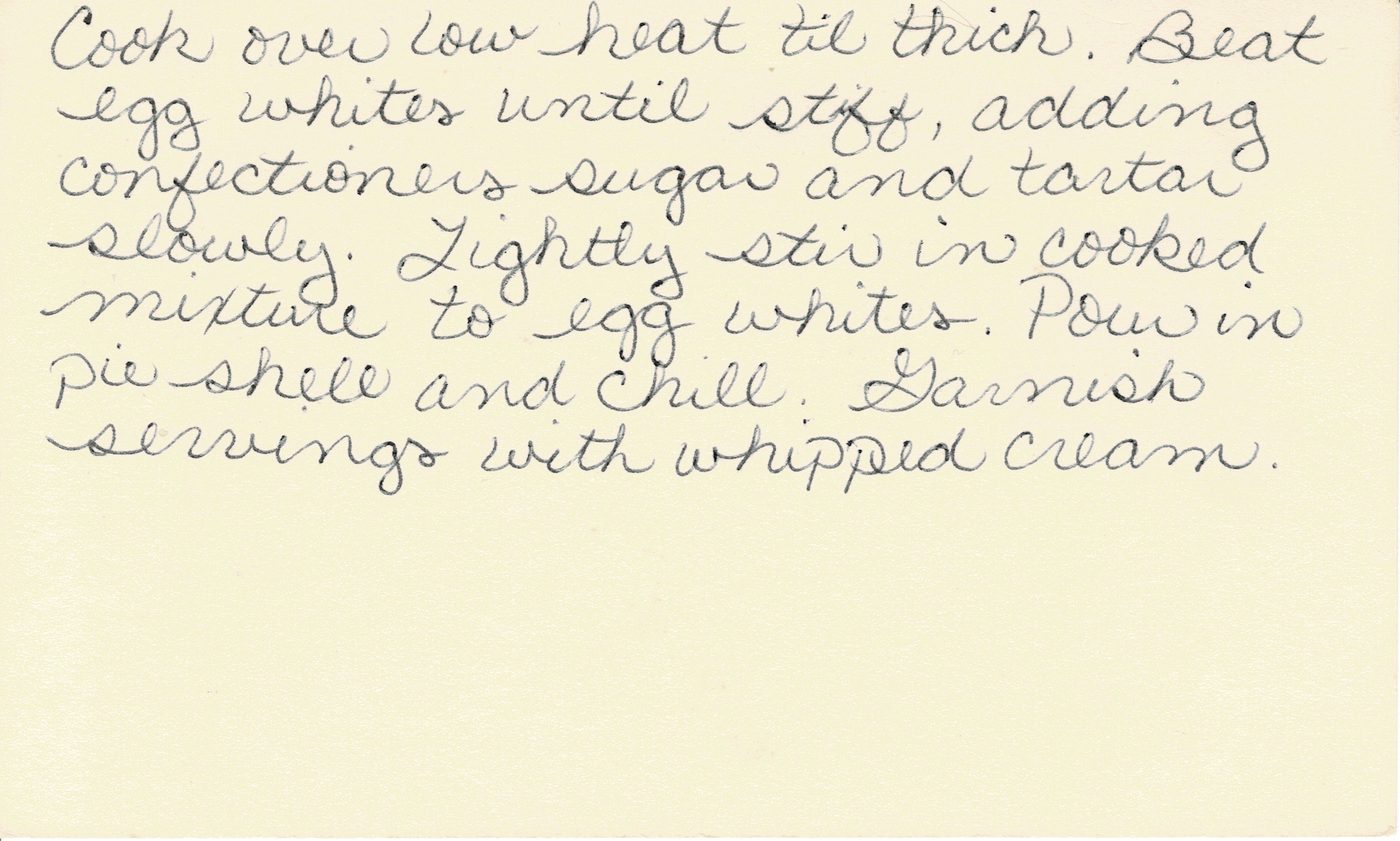 Cook over low heat til thick. Beat
egg whites until stiff, adding
confectioners sugar and tartar
slowly. Lightly stir in cooked
mixture to egg whites. Pour in
pie shell and chill. Garnish
servings with whipped cream.